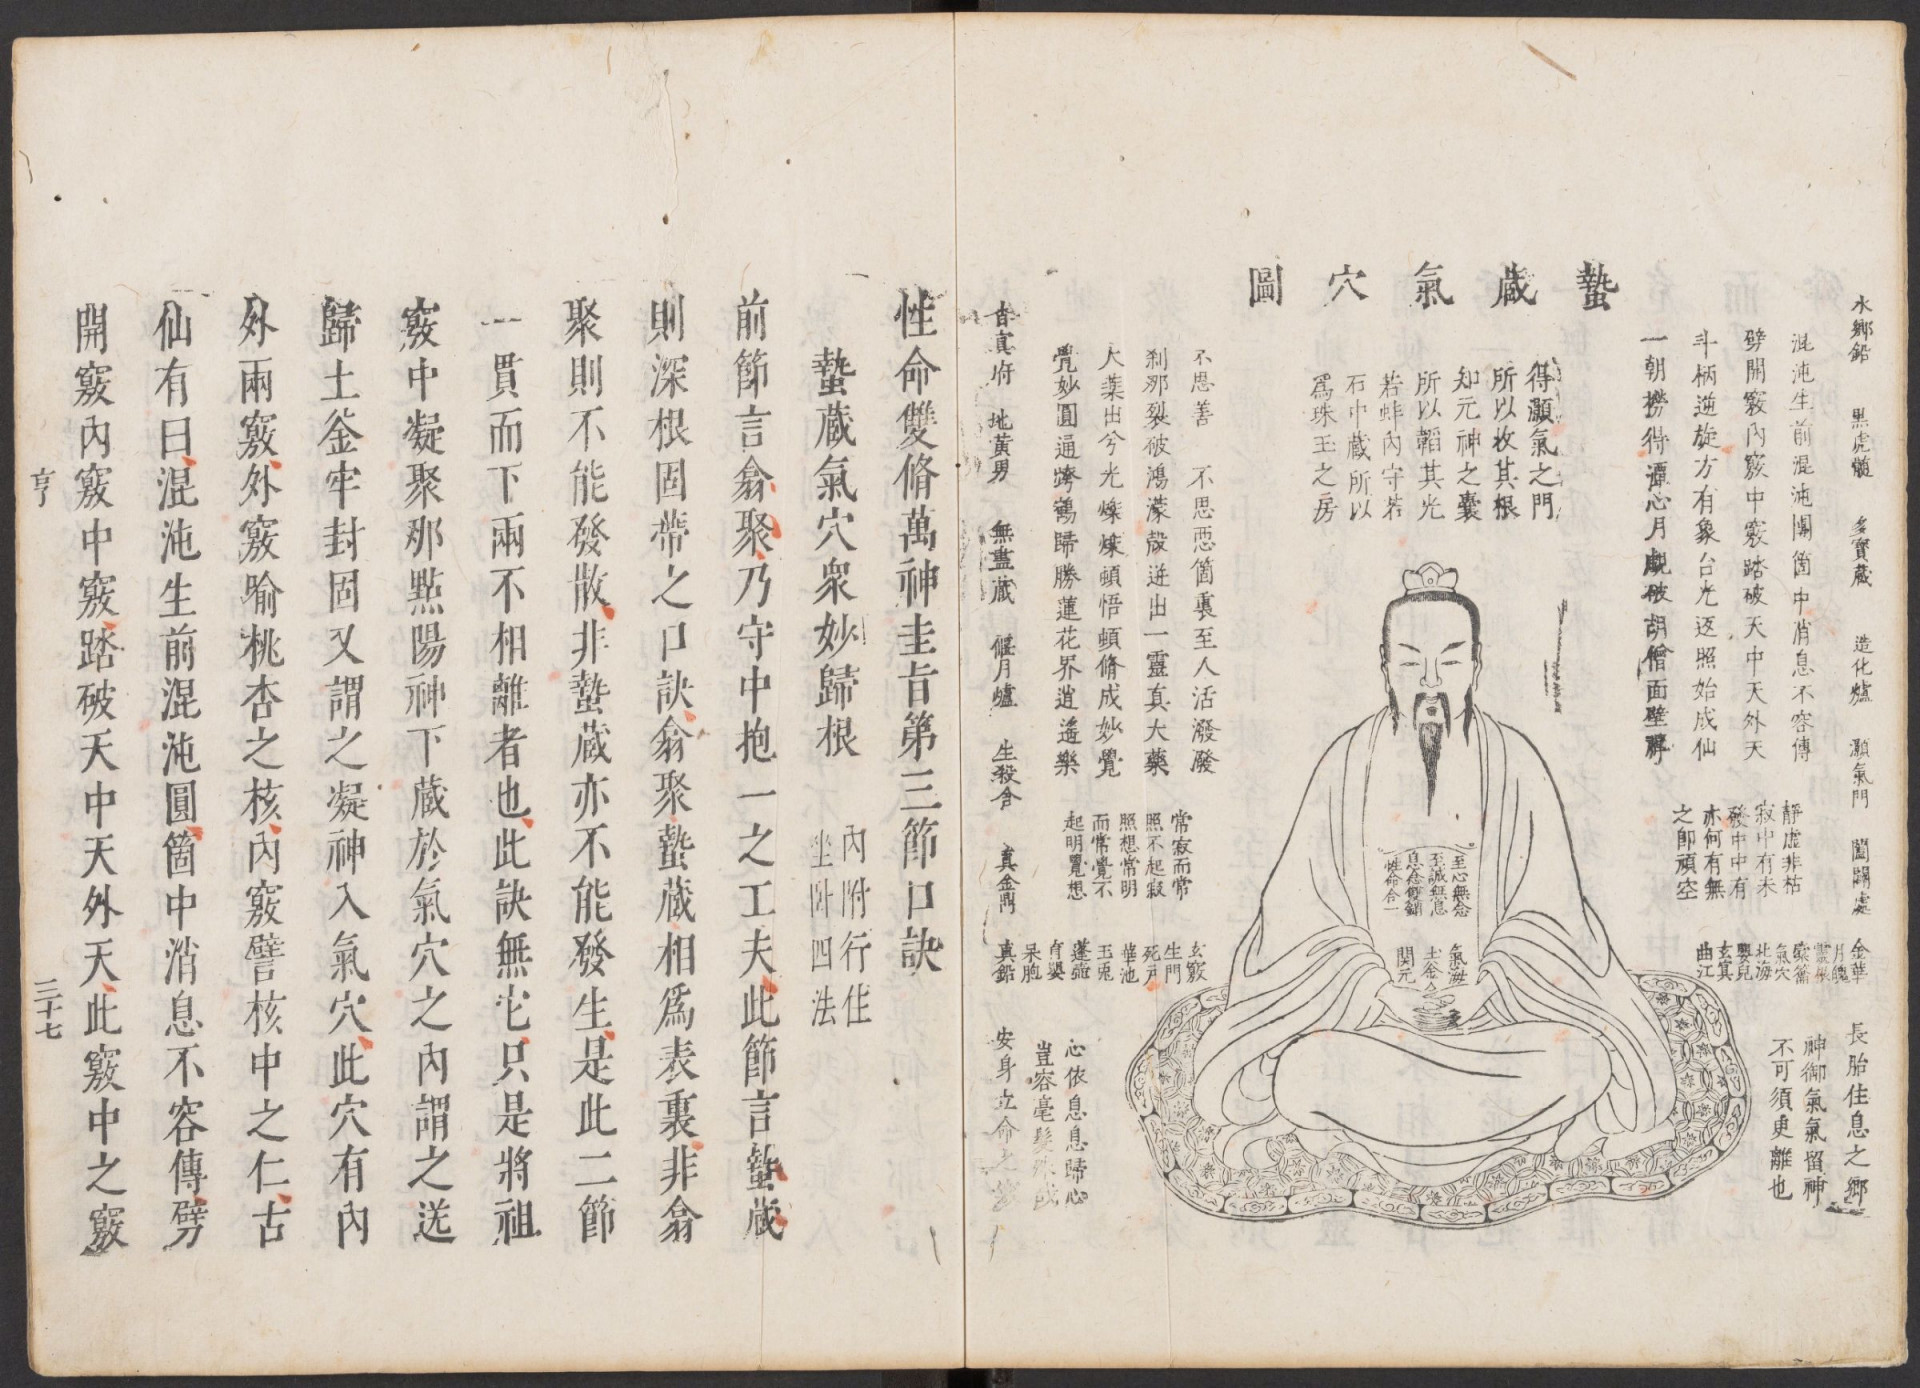 蟄藏氣穴圖
水鄉鉛 黑虎髓 多寶藏 造化爐 灝氣門 闔闢處
長胎住息之鄉
混沌生前混沌團箇中消息不容傳
劈開竅內竅中竅踏破天中天外天
斗柄逆旋方有象台光返照始成仙
一朝撈得潭心月覷破胡僧面壁禪
得灝氣之門
所以收其根
知元神之囊
所以韜其光
若蚌內守若
石中藏所以
為珠玉之房
靜虛非枯
寂中有未
發中中有
亦何有無
之卽頑空
金華
月魄
靈根
橐籥
氣穴
北海
嬰兒
玄冥
曲江
神御氣氣留神
不可須臾離也
至心無念
至誠無息
息念雙銷
性命合一
氣海
土釜
關元
不思善 不思惡箇裏至人活潑潑
剎那裂破鴻濛殼迸出一靈真大藥
大藥出兮光爍爍頓悟頓脩成妙覺
覺妙圓通跨鶴歸勝蓮花界逍遙樂
常寂而常
照不起寂
照想常明
而常覺不
起明覺想
玄竅
生門
死戶
華池
玉兎
蓬壺
育嬰
呆胞
真鉛
心依息息歸心
豈容毫髮殊
真府 地黃男 無盡藏 偃月爐 生殺舍 真金鼎
安身立命之
性命雙脩萬神圭旨第三節口訣
蟄藏氣穴衆妙歸根 內附行住
坐卧四法
前節言翕聚乃守中抱一之工夫此節言蟄藏
則深根固蒂之口訣翕聚蟄藏相爲表裏非翕
聚則不能發散非蟄藏亦不能發生是此二節
一貫而下兩不相離者也此訣無它只是將祖
竅中凝聚那點陽神下藏於氣穴之內謂之送
歸土釜牢封固又謂之凝神入氣穴此穴有內
外兩竅外竅喻桃杏之核內竅譬核中之仁古
仙有曰混沌生前混沌圓箇中消息不容傳劈
開竅內竅中竅踏破天中天外天此竅中之竅
亨 三十七